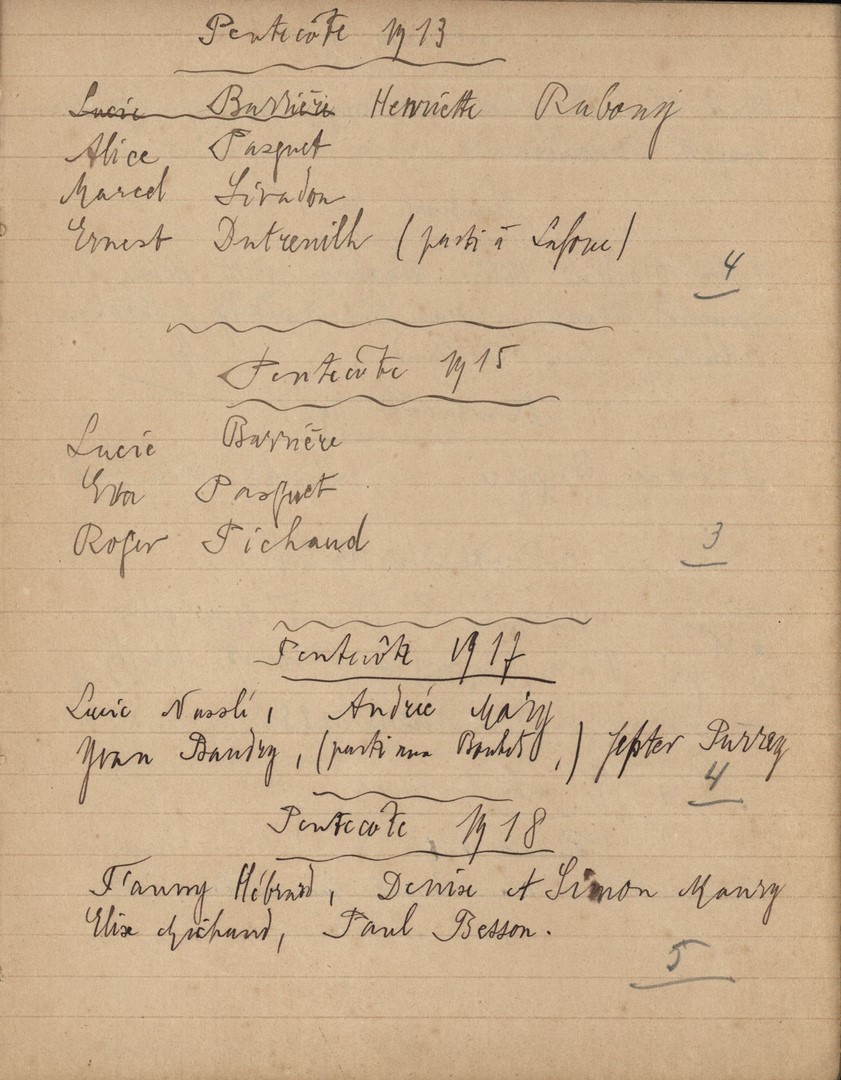 Pentecôte 1913
Lucie Barrière Henriette Rabouy
Alice Pasquet
Marcel Livadon
Ernest Dutreuilh (parti à Laforce)
4
Pentecôte 1915
Lucie Barrière
Eva Pasquet
Roger Pichaud
3
Pentecôte 1917
Lucie Nussli, André Mary
Yvan Baudry, (parti aux ) Purrey
4
Pentecôte 1918
Fanny Hébrard, Denise et Simon Maury
Elise Michaud, Paul Besson.
5